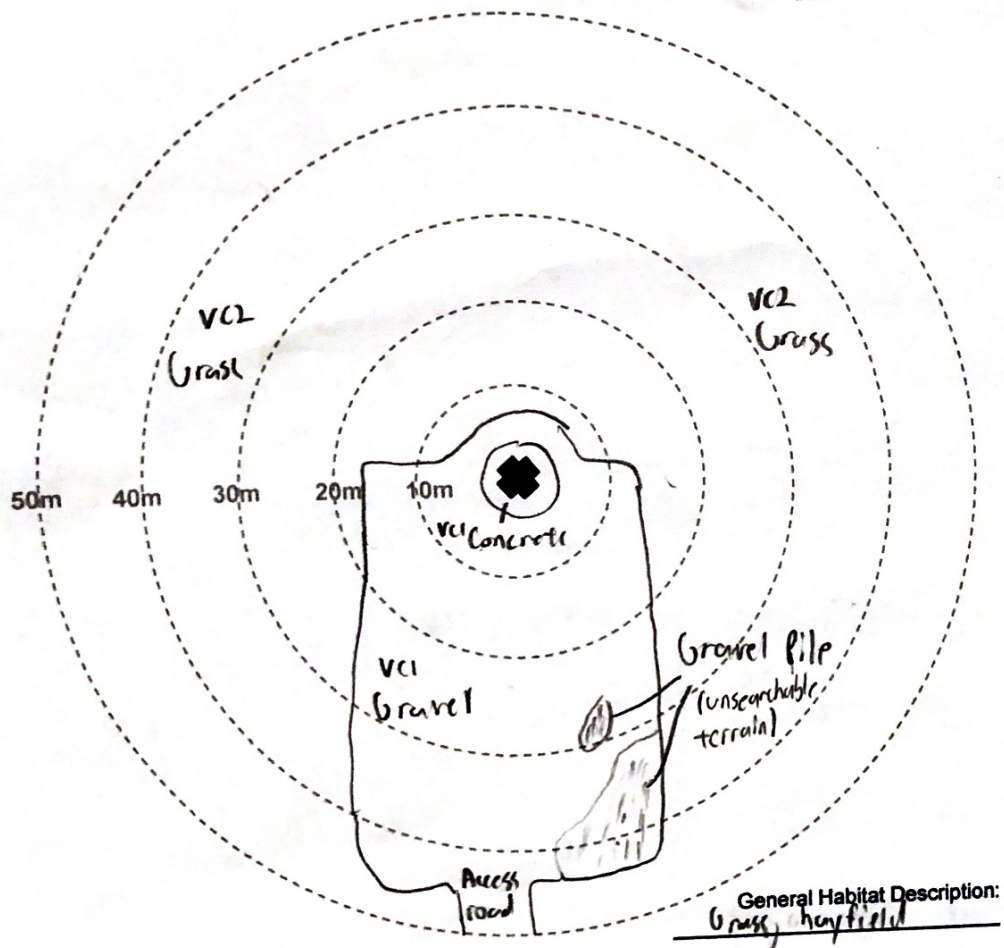 VC2
Grass
VC2
Grass
50m 40m 30m 20m 10m
VC1 Concrete
VC1
Gravel
Gravel Pile
(unsearchable
terrain)
Access
road
General Habitat Description:
Grass, hayfield